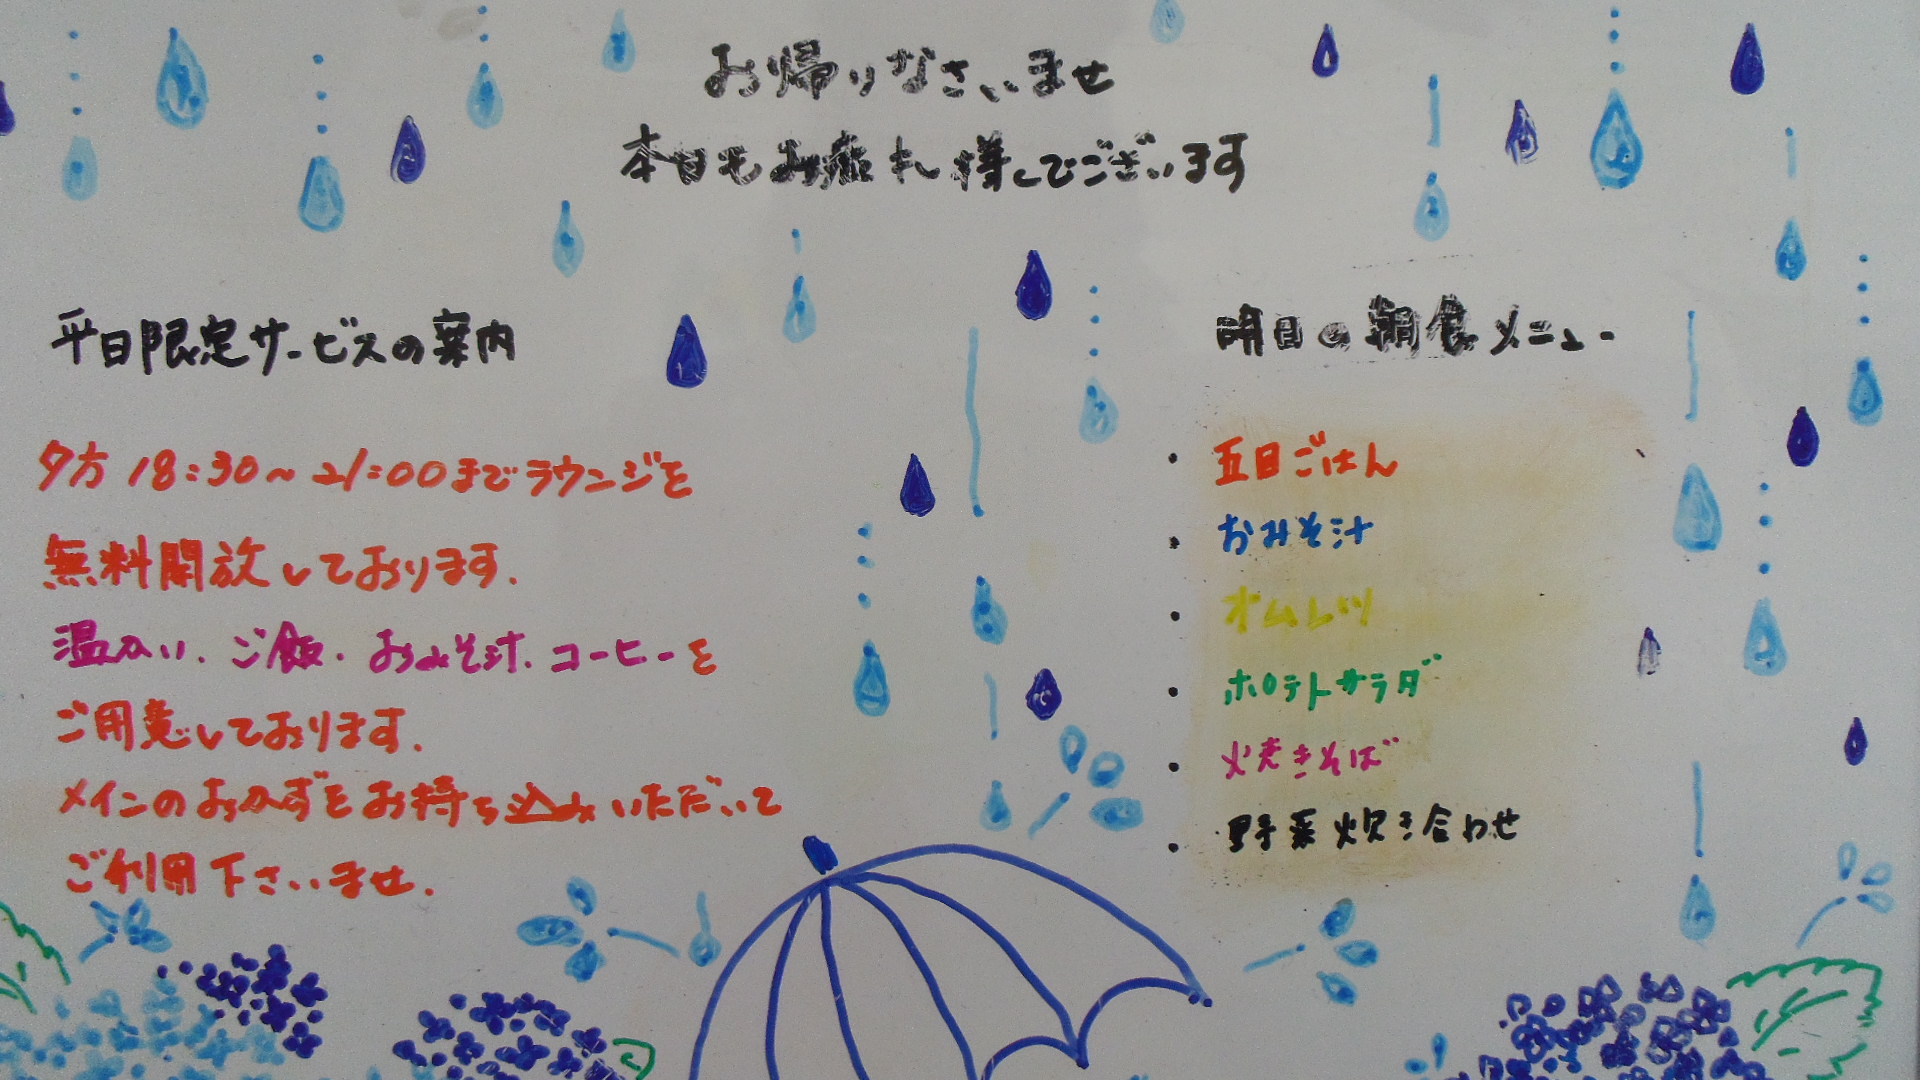 お帰りなさいませ
本日もお疲れ様でございます
平日限定サービスの案内
夕方 18:30~21:00までラウンジを
無料開放しております.
温かい、ご飯・おみそ汁、コーヒーを
ご用意しております.
メインのおかずをお持ち込みいただいて
ご利用下さいませ.
明日の朝食メニュー
・五目ごはん
・おみそ汁
・オムレツ
・ポテトサラダ
・焼きそば
・野菜炊き合わせ